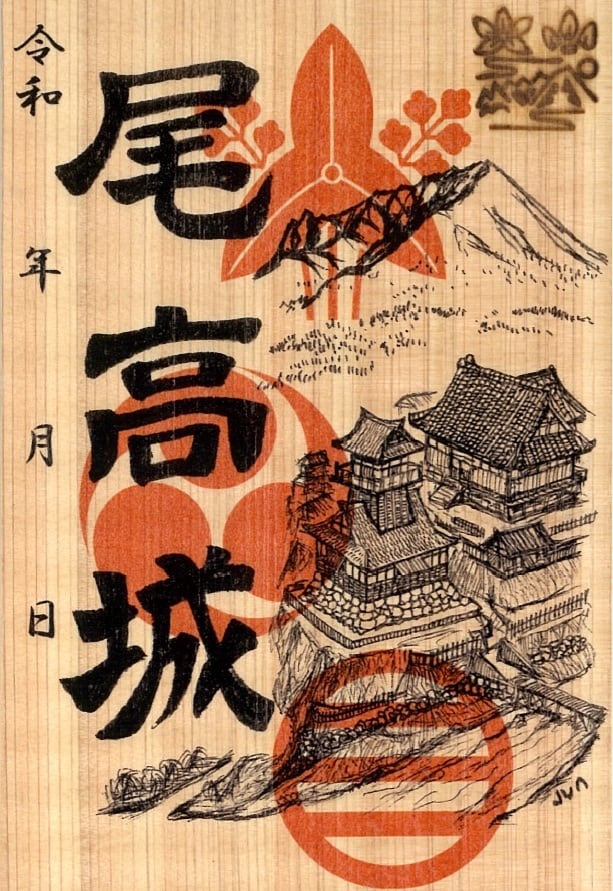 尾高城
令和 年 月 日
JUN